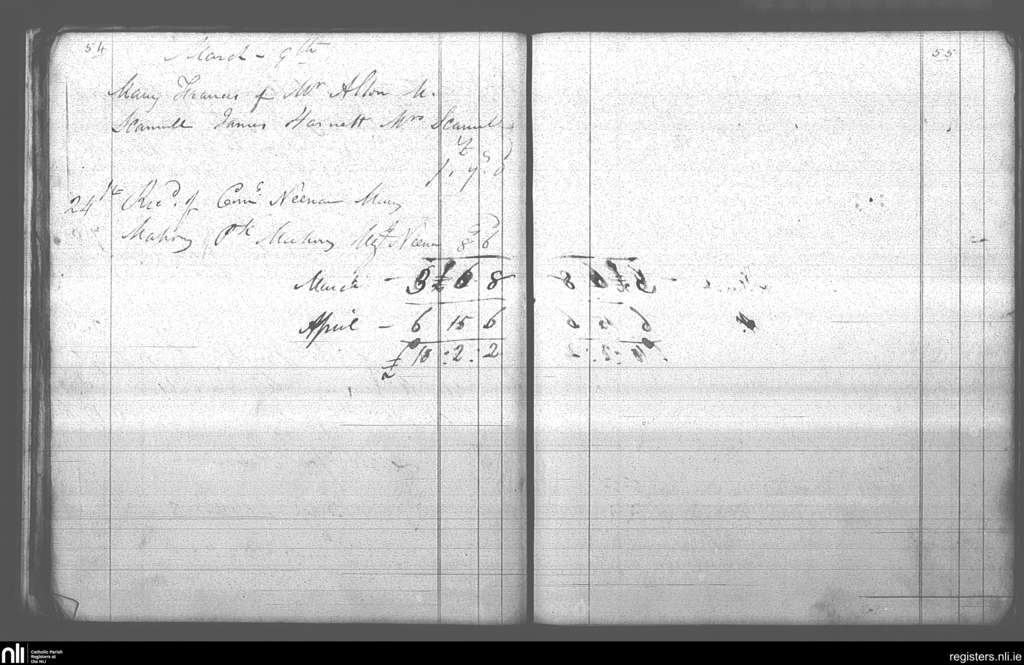 54
March - 9th
Mary Francis of Mr Alton
James Harnett Mrs
£
1.9.6
24th Recd. of Corns Neenan Mary
Mahony Pk Mahony Mgt Neenan 8 6
March - 3 £ 6 8
April - 6 15 6
£ 10:2:2
55
nli Catholic Parish
Registers at
the NLI
registers.nli.ie